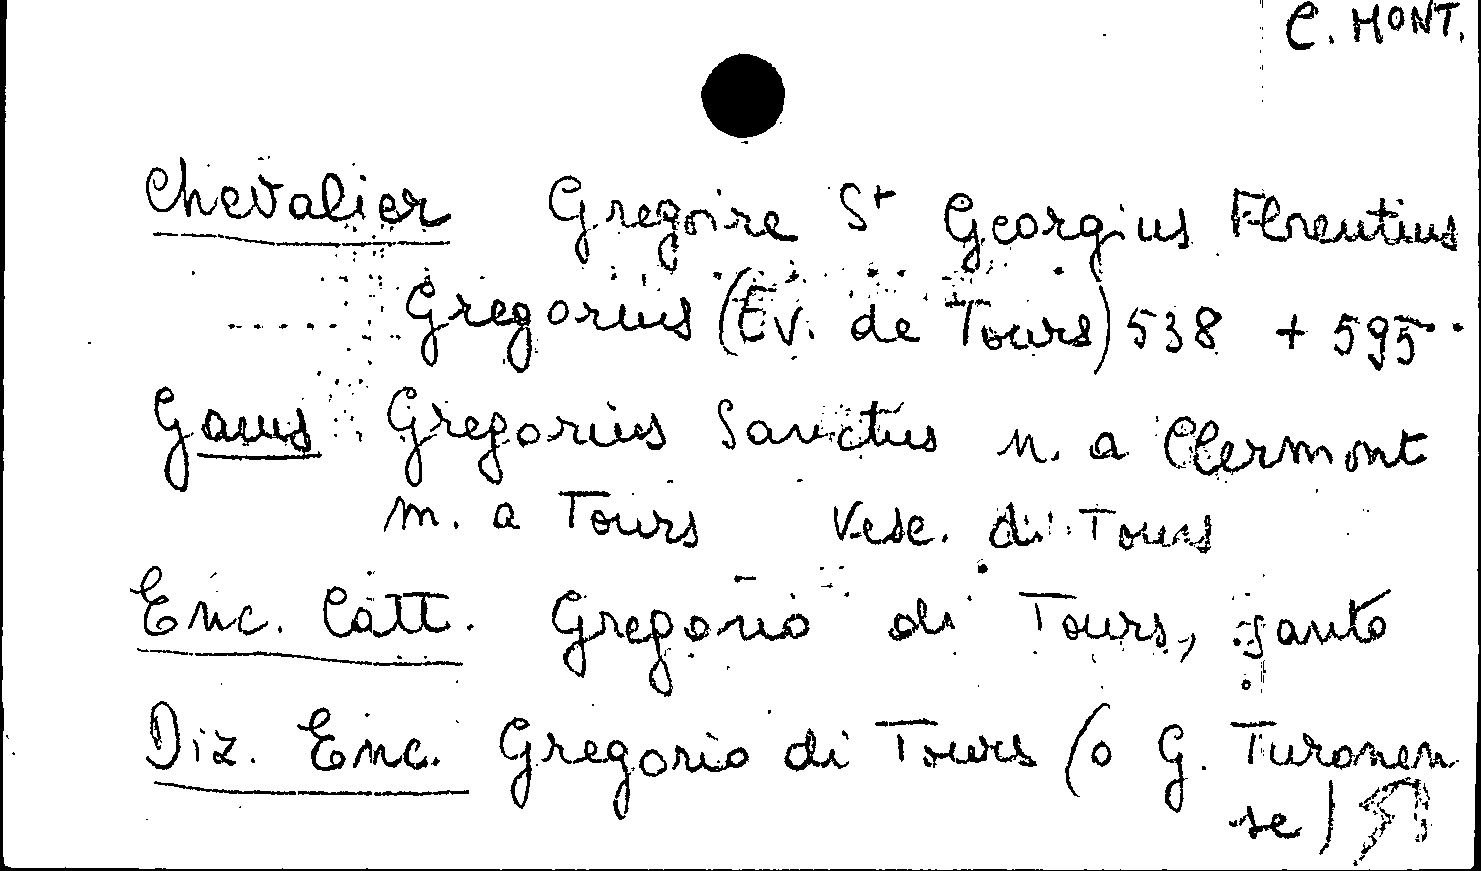 C. MONT.
Chevalier Gregoire St Georgius Florentius
Gregorius (Ev. de Tours) 538 + 595
Gams Gregorius Sanctus n. a Clermont
m. a Tours Vesc. di Tours
Enc. Catt. Gregorio di Tours, santo
Diz. Enc. Gregorio di Tours (o G. Turonen
se)